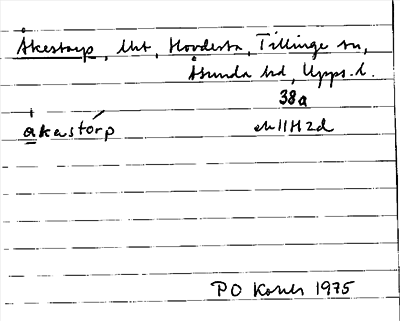 Åkestorp, lht, Hovdesta, Tillinge sn,
Åsunda hd, Upps. l.
38a
åkastórp
ek 11H2d
PO 1975